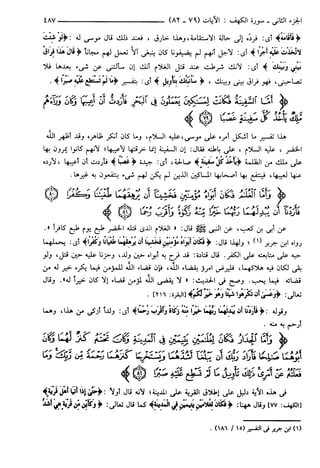 الجزء الثاني ـ سورة الكهف : الآيات (٧٩ ـ ٨٢) ٤٨٧
﴿ فَأَقَامَهُ ﴾ أى: فرده إلى حالة الاستقامة، وهذا خارق ، فعند ذلك قال موسى له :﴿لَوْ شِئْتَ
لَاتَّخَذْتَ عَلَيْهِ أَجْرًا ﴾ أى: لأجل أنهم لم يضيفونا كان ينبغى ألا تعمل لهم مجاناً ﴿قَالَ هَذَا فِرَاقُ
بَيْنِي وَبَيْنِكَ ﴾ أى: لأنك شرطت عند قتل الغلام أنك إن سألتنى عن شىء بعدها فلا
تصاحبنى، فهو فراق بينى وبينك ، ﴿ سَأُنَبِّئُكَ بِتَأْوِيلِ ﴾ أى: بتفسير ﴿مَا لَمْ تَسْتَطِعْ عَلَيْهِ صَبْرًا ﴾ .
أَمَّا السَّفِينَةُ فَكَانَتْ لِمَسَاكِينَ يَعْمَلُونَ فِي الْبَحْرِ فَأَرَدْتُ أَنْ أَعِيبَهَا وَكَانَ وَرَاءَهُمْ
مَلِكٌ يَأْخُذُ كُلَّ سَفِينَةٍ غَصْبًا ﴿٧٩﴾
هذا تفسير ما أشكل أمره على موسى، عليه السلام، وما كان أنكر ظاهره وقد أظهر الله
الخضر ، عليه السلام ، على باطنه فقال: إن السفينة إنما خرقتها لأعيبها؛ لأنهم كانوا يمرون بها
على ملك من الظلمة ﴿يَأْخُذُ كُلَّ سَفِينَةٍ ﴾ صالحة ، أى: جيدة ﴿ غَصْبًا ﴾ فأردت أن أعيبها ، لأرده
عنها لعيبها، فينتفع بها أصحابها المساكين الذين لم يكن لهم شىء ينتفعون به غيرها.
وَأَمَّا الْغُلَامُ فَكَانَ أَبَوَاهُ مُؤْمِنَيْنِ فَخَشِينَا أَنْ يُرْهِقَهُمَا طُغْيَانًا وَكُفْرًا ﴿٨٠﴾
فَأَرَدْنَا أَنْ يُبْدِلَهُمَا رَبُّهُمَا خَيْرًا مِنْهُ زَكَاةً وَأَقْرَبَ رُحْمًا ﴿٨١﴾
عن أبى بن كعب، عن النبى ﷺ قال: « الغلام الذى قتله الخضر طبع يوم طبع كافراً ».
رواه ابن جرير (١) ؛ ولهذا قال: ﴿ فَكَانَ أَبَوَاهُ مُؤْمِنَيْنِ فَخَشِينَا أَنْ يُرْهِقَهُمَا طُغْيَانًا وَكُفْرًا﴾ أى: يحملهما
حبه على متابعته على الكفر. قال قتادة: قد فرح به أبواه حين ولد، وحزنا عليه حين قتل، ولو
بقى لكان فيه هلاكهما، فليرض امرؤ بقضاء الله، فإن قضاء الله للمؤمن فيما يكره خير له من
قضائه فيما يحب. وصح فى الحديث: « لا يقضى الله لمؤمن قضاء إلا كان خيراً له». وقال
تعالى: ﴿وَعَسَى أَنْ تَكْرَهُوا شَيْئًا وَهُوَ خَيْرٌ لَكُمْ﴾ [البقرة: ٢١٦] .
وقوله : ﴿فَأَرَدْنَا أَنْ يُبْدِلَهُمَا رَبُّهُمَا خَيْرًا مِنْهُ زَكَاةً وَأَقْرَبَ رُحْمًا﴾ أى: ولداً أزكى من هذا، وهما
أرحم به منه .
وَأَمَّا الْجِدَارُ فَكَانَ لِغُلَامَيْنِ يَتِيمَيْنِ فِي الْمَدِينَةِ وَكَانَ تَحْتَهُ كَنْزٌ لَهُمَا وَكَانَ
أَبُوهُمَا صَالِحًا فَأَرَادَ رَبُّكَ أَنْ يَبْلُغَا أَشُدَّهُمَا وَيَسْتَخْرِجَا كَنْزَهُمَا رَحْمَةً مِنْ رَبِّكَ وَمَا
فَعَلْتُهُ عَنْ أَمْرِي ذَلِكَ تَأْوِيلُ مَا لَمْ تَسْطِعْ عَلَيْهِ صَبْرًا ﴿٨٢﴾
فى هذه الآية دليل على إطلاق القرية على المدينة؛ لأنه قال أولاً : ﴿حَتَّى إِذَا أَتَيَا أَهْلَ قَرْيَةٍ﴾
[الكهف: ٧٧] وقال ههنا: ﴿ فَكَانَ لِغُلَامَيْنِ يَتِيمَيْنِ فِي الْمَدِينَةِ﴾ كما قال تعالى: ﴿ وَكَأَيِّنْ مِنْ قَرْيَةٍ هِيَ أَشَدُّ
(١) ابن جرير فى التفسير (١٥ / ١٨٦) .